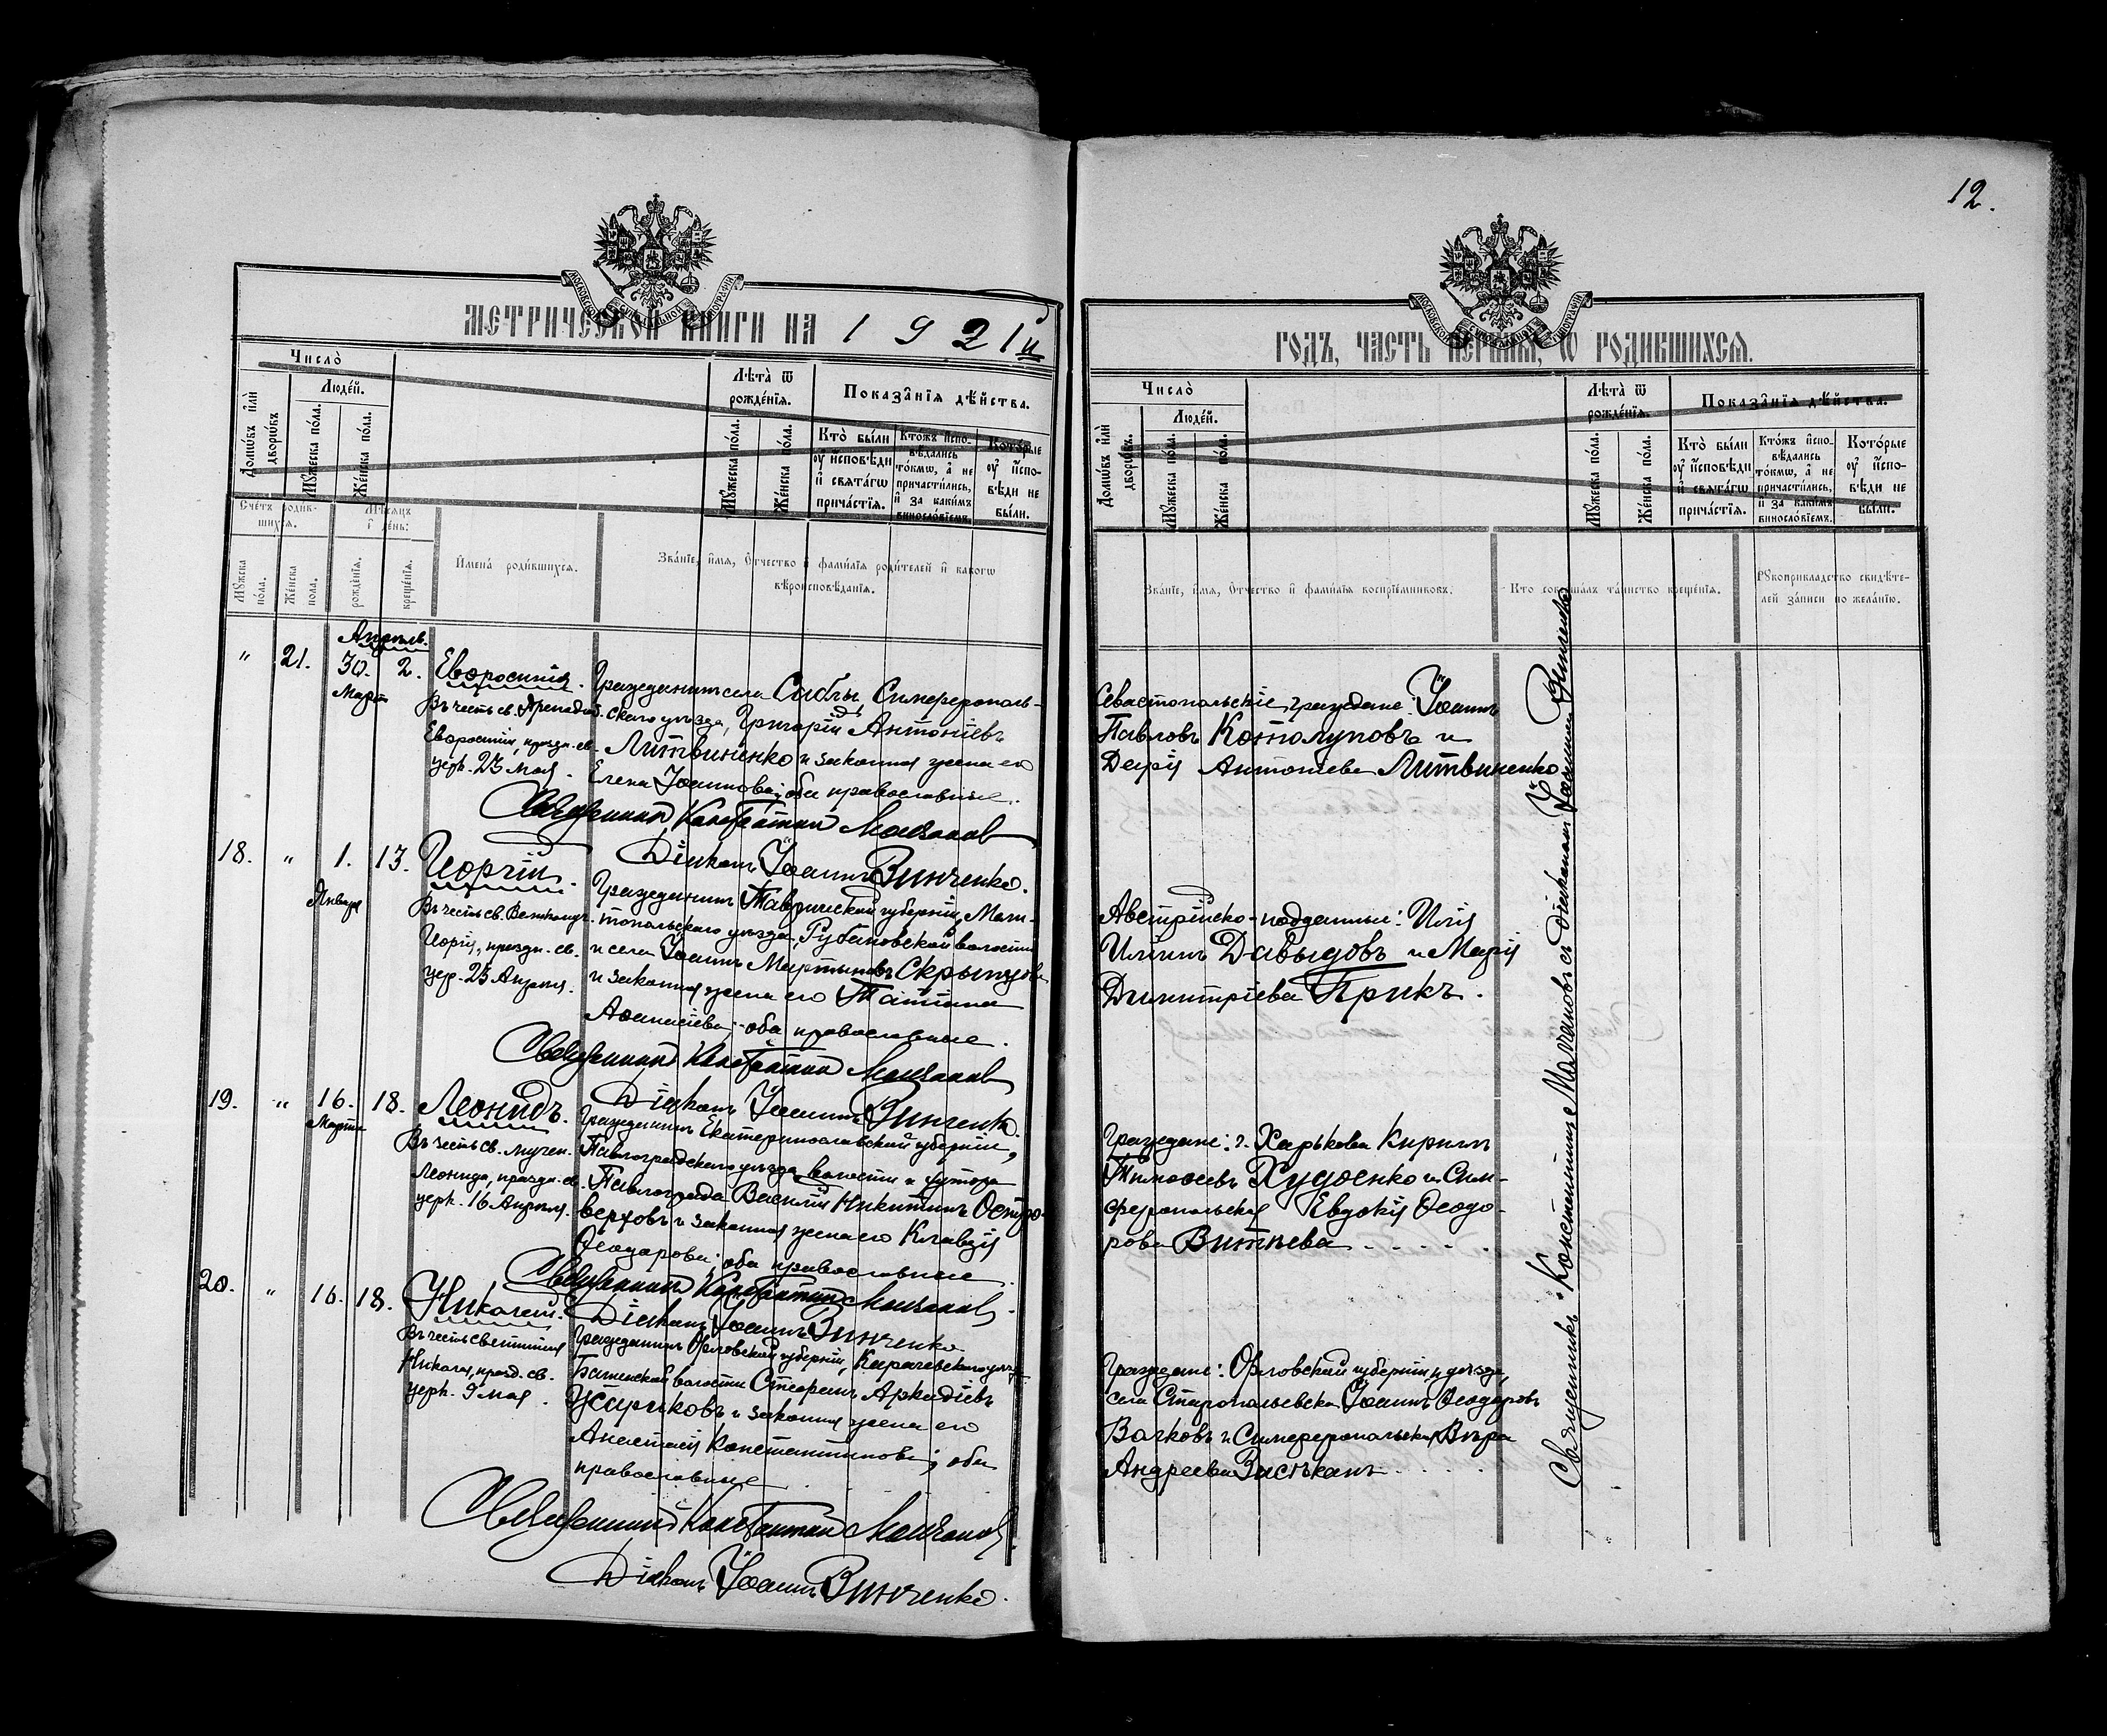 12.
МЕТРИЧЕСКОЙ КНИГИ НА 1921й
ГОДЪ, ЧАСТЬ ПЕРВАЯ, Ѡ РОДИВШИХСЯ.
Число̀
Людéй.
Домѡвъ и҆лѝ дворѡвъ
Мꙋ́жеска по́ла.
Же́нска по́ла.
Лѣта̀ ѿ рожде́нїѧ.
Мꙋ́жеска по́ла.
Же́нска по́ла.
Показа̑нїѧ дѣ́йства.
Кто̀ бы́ли
оу҆ и҆сповѣ́ди
и҆ свѧта́гѡ
прича́стїѧ.
Кто́жъ и҆спо-
вѣ́дались
то́кмѡ, а҆ не
причасти́лись,
и҆ за каки́мъ
винослѡ́вїемъ.
Кото́рые
оу҆ и҆спо-
вѣ́ди не
бы́ли.
Счетъ родив-
шихся.
Мѣсяцъ
и день:
Мꙋжска пола.
Женска пола.
рожденїя.
крещенїя.
Имена родившихся.
Званїе, имя, отчество и фамилїя родителей и какогѡ
вѣроисповѣданїя.
Число̀
Людéй.
Домѡвъ и҆лѝ дворѡвъ.
Мꙋ́жеска по́ла.
Же́нска по́ла.
Лѣта̀ ѿ рожде́нїѧ.
Мꙋ́жеска по́ла.
Же́нска по́ла.
Показа̑нїѧ дѣ́йства.
Кто̀ бы́ли
оу҆ и҆сповѣ́ди
и҆ свѧта́гѡ
прича́стїѧ.
Кто́жъ и҆спо-
вѣ́дались
то́кмѡ, а҆ не
причасти́лись,
и҆ за каки́мъ
винослѡ́вїемъ.
Кото́рые
оу҆ и҆спо-
вѣ́ди не
бы́ли.
Званїе, имя, отчество и фамилїя воспрїемниковъ.
Кто совершалъ таинство крещенїя.
Рꙋкоприкладство свидѣте-
лей записи по желанїю.
Апрѣль.
" 21. 30. 2.
Март
Евфросинія.
Въ честь св. Преподоб.
Евфросиніи, праздн. св.
церк. 23 Мая.
Гражданинъ села Саблы, Симферополь-
скаго уѣзда, Григорій Антоніевъ
Литвиненко и законная жена его
Елена Іоаннова; оба православные.
Священникъ Константин Молчанов
Діаконъ Іоаннъ Винченко.
Севастопольскіе граждане: Іоаннъ
Павловъ Котолуповъ и
Дарія Антоніева Литвиненко
18. " 1. 13.
Января
Георгій.
Въ честь св. Великому.
Георгія, праздн. св.
цер. 23 Апрѣля.
Гражданинъ Таврической губерніи, Мели-
топольскаго уѣзда, Рубановской волости
и села Іоаннъ Мартыновъ Скрыпцовъ
и законная жена его Татіана
Аѳанасіева; оба православные.
Священникъ Константин Молчанов
Діаконъ Іоаннъ Винченко.
Австрійско-подданные: Илія
Иліинъ Давыдовъ и Марія
Димитріева Прикъ.
19. " 16. 18.
Марта
Леонидъ.
Въ честь св. мучен.
Леонида, праздн. св.
церк. 16 Апрѣля.
Гражданинъ Екатеринославской губерніи,
Павлоградскаго уѣзда волости и хутора
Павлограда Василій Никитинъ Остро-
верховъ и законная жена его Клавдія
Ѳеодорова; оба православные.
Священникъ Константин Молчанов
Діаконъ Іоаннъ Винченко
Граждане: г. Харькова Кириллъ
Тимоѳеевъ Худоенко и Сим-
феропольская Евдокія Ѳеодо-
рова Витнева
20. " 16. 18.
Николай.
Въ честь Святителя
Николая, празд. св.
церк. 9 Мая.
Гражданинъ Орловской губерніи, Карачевскаго уѣзда
волости Стефанъ Аркадіевъ
Усариковъ и законная жена его
Анастасія Константинова; оба
православные
Священникъ Константин Молчанов
Діаконъ Іоаннъ Винченко.
Граждане: Орловской губерніи и уѣзда,
села Іоаннъ Ѳеодоровъ
Вачковъ и Симферопольская Вѣра
Андреева
Священникъ Константинъ Молчановъ съ діакономъ Іоанномъ Винченко